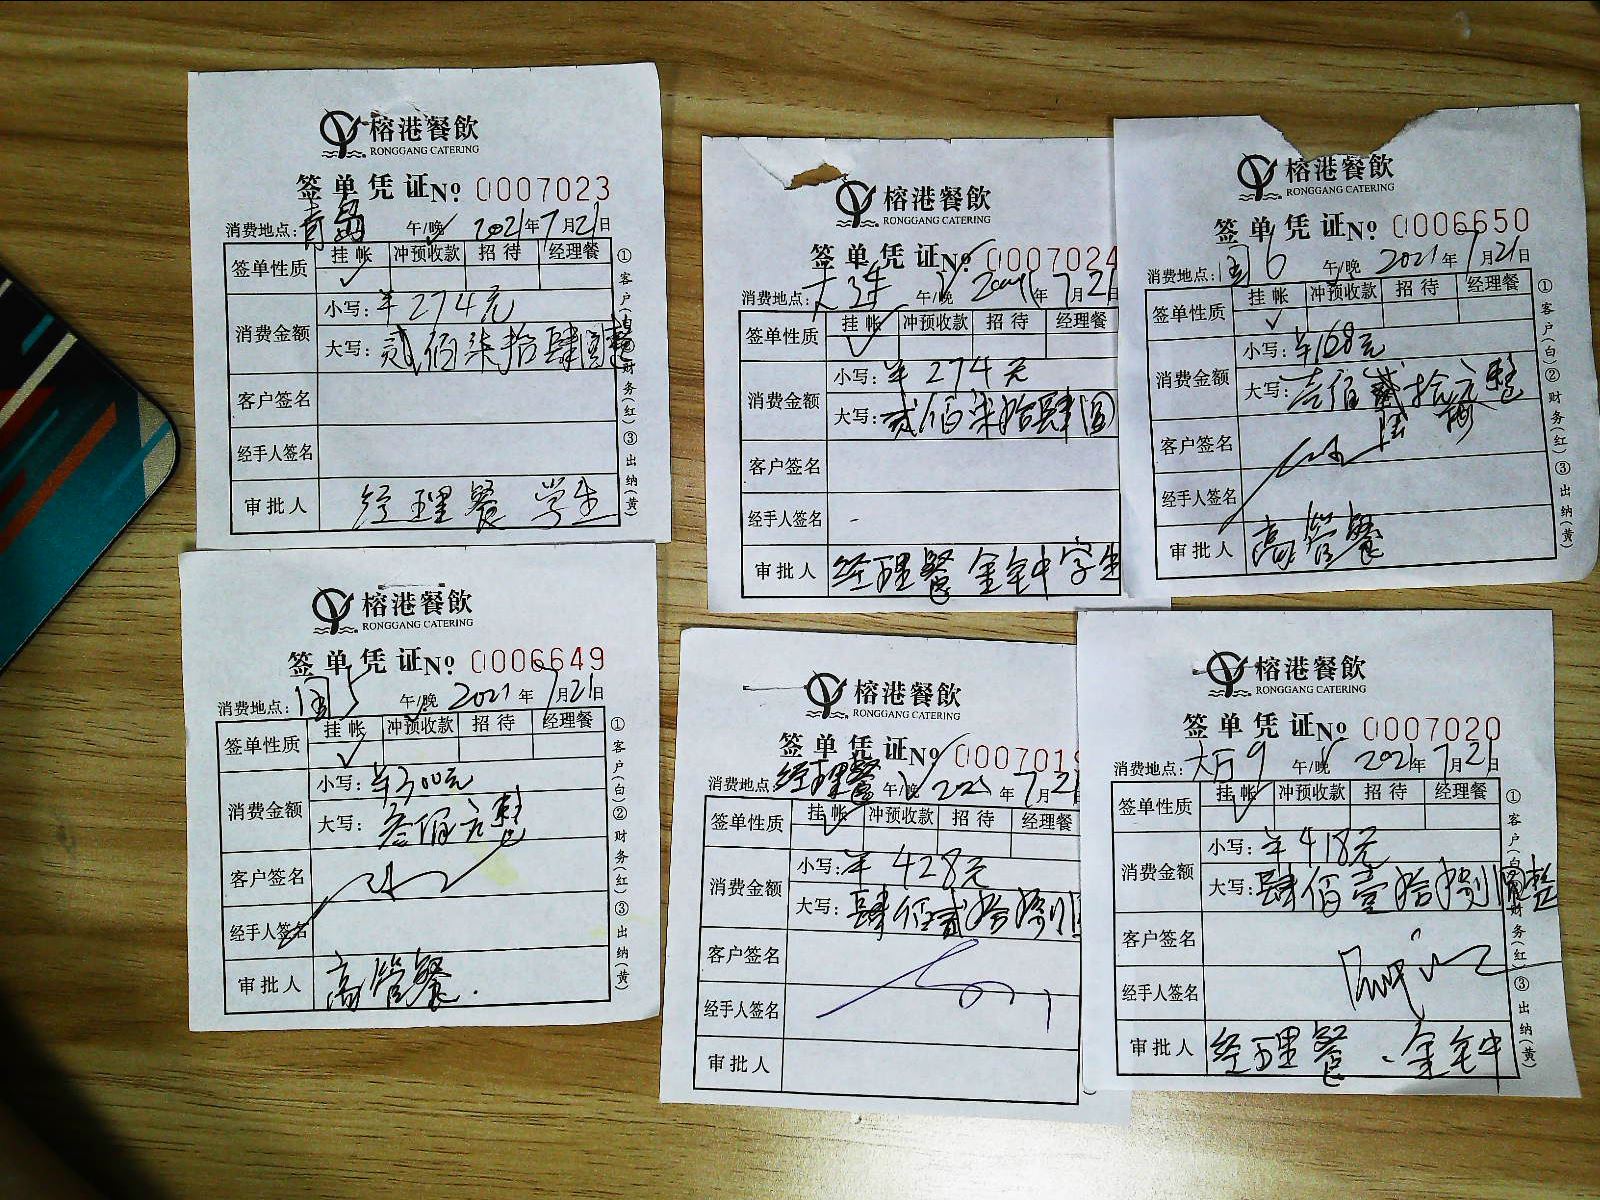 榕港餐飲
RONGGANG CATERING
签单凭证 № 0007023
消费地点: 青岛 午/晚 2021年7月21日
签单性质 挂帐 冲预收款 招待 经理餐
消费金额 小写: ¥274元
大写: 贰佰柒拾肆圆整
客户签名
经手人签名
审批人 经理餐 学生
①客户(白)②财务(红)③出纳(黄)
榕港餐飲
RONGGANG CATERING
签单凭证 № 0007024
消费地点: 大连 午/晚 2021年7月21日
签单性质 挂帐 冲预收款 招待 经理餐
消费金额 小写: ¥274元
大写: 贰佰柒拾肆圆
客户签名
经手人签名
审批人 经理餐 金钟中学生
榕港餐飲
RONGGANG CATERING
签单凭证 № 0006650
消费地点: 国6 午/晚 2021年7月21日
签单性质 挂帐 冲预收款 招待 经理餐
消费金额 小写: ¥168元
大写: 壹佰 拾 元整
客户签名
经手人签名
审批人 高管餐
①客户(白)②财务(红)③出纳(黄)
榕港餐飲
RONGGANG CATERING
签单凭证 № 0006649
消费地点: 国5 午/晚 2021年7月21日
签单性质 挂帐 冲预收款 招待 经理餐
消费金额 小写: ¥300元
大写: 叁佰元整
客户签名
经手人签名
审批人 高管餐.
①客户(白)②财务(红)③出纳(黄)
榕港餐飲
RONGGANG CATERING
签单凭证 № 0007019
消费地点: 经理餐 午/晚 2021年7月21
签单性质 挂帐 冲预收款 招待 经理餐
消费金额 小写: ¥428元
大写: 肆佰贰拾捌圆
客户签名
经手人签名
审批人
榕港餐飲
RONGGANG CATERING
签单凭证 № 0007020
消费地点: 大厅9 午/晚 2021年7月21日
签单性质 挂帐 冲预收款 招待 经理餐
消费金额 小写: ¥418元
大写: 肆佰壹拾捌圆整
客户签名
经手人签名
审批人 经理餐、金钟中
①客户(白)②财务(红)③出纳(黄)